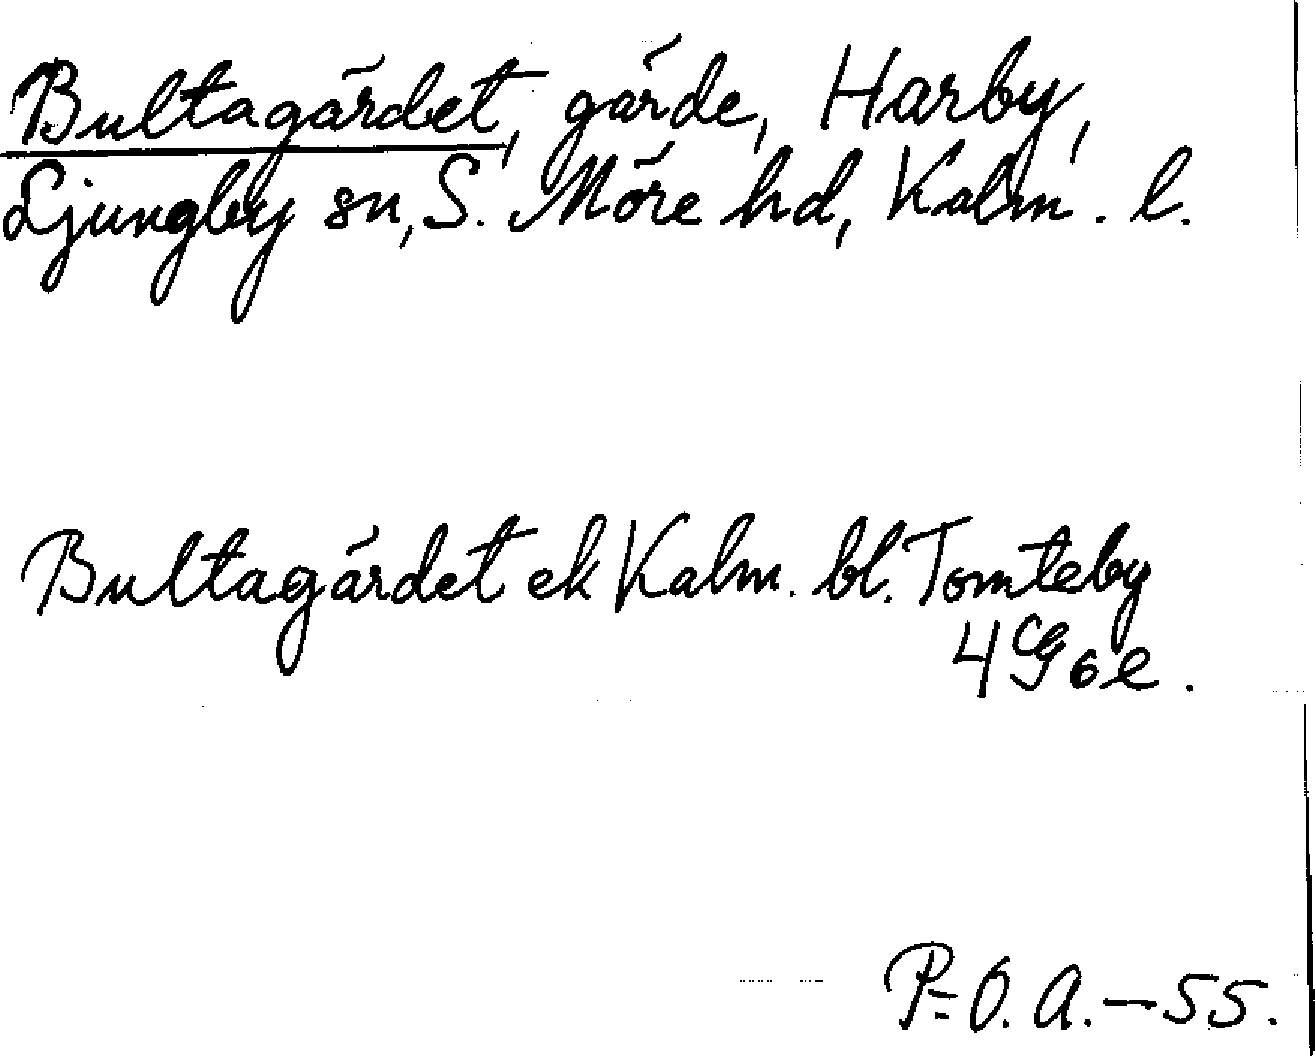 Bultagärdet, gärde, Harby,
Ljungby sn, S. Möre hd, Kalm. l.
Bultagärdet ek Kalm. bl. Tomteby
4 G 6 e.
P=O. A. – 55.